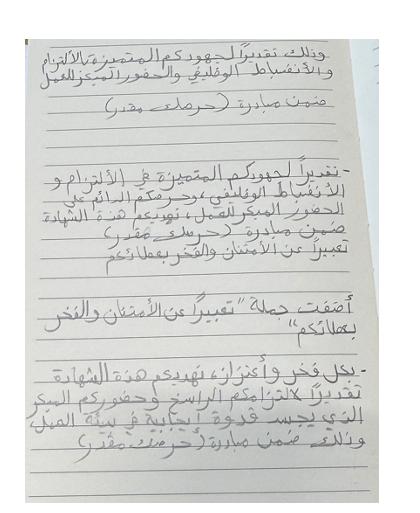 وذلك تقديراً لجهودكم المتميزة بالألتزام
والأنضباط الوظيفي والحضور المبكر للعمل
ضمن مبادرة (حرصك مقدر)
- تقديراً لجهودكم المتميزة في الألتزام و
الأنضباط الوظيفي، وحرصكم الدائم على
الحضور المبكر للعمل، نهديكم هذة الشهادة
ضمن مبادرة (حرصك مقدر)
تعبيراً عن الأمتنان والفخر بعطائكم
أضفت جملة "تعبيراً عن الأمتنان والفخر
بعطائكم"
- بكل فخر وأعتزاز، نهديكم هذة الشهادة
تقديراً لالتزامكم الراسخ وحضوركم المبكر
الذي يجسد قدوة إيجابية في بيئة العمل،
وذلك ضمن مبادرة (حرصك مقدر)